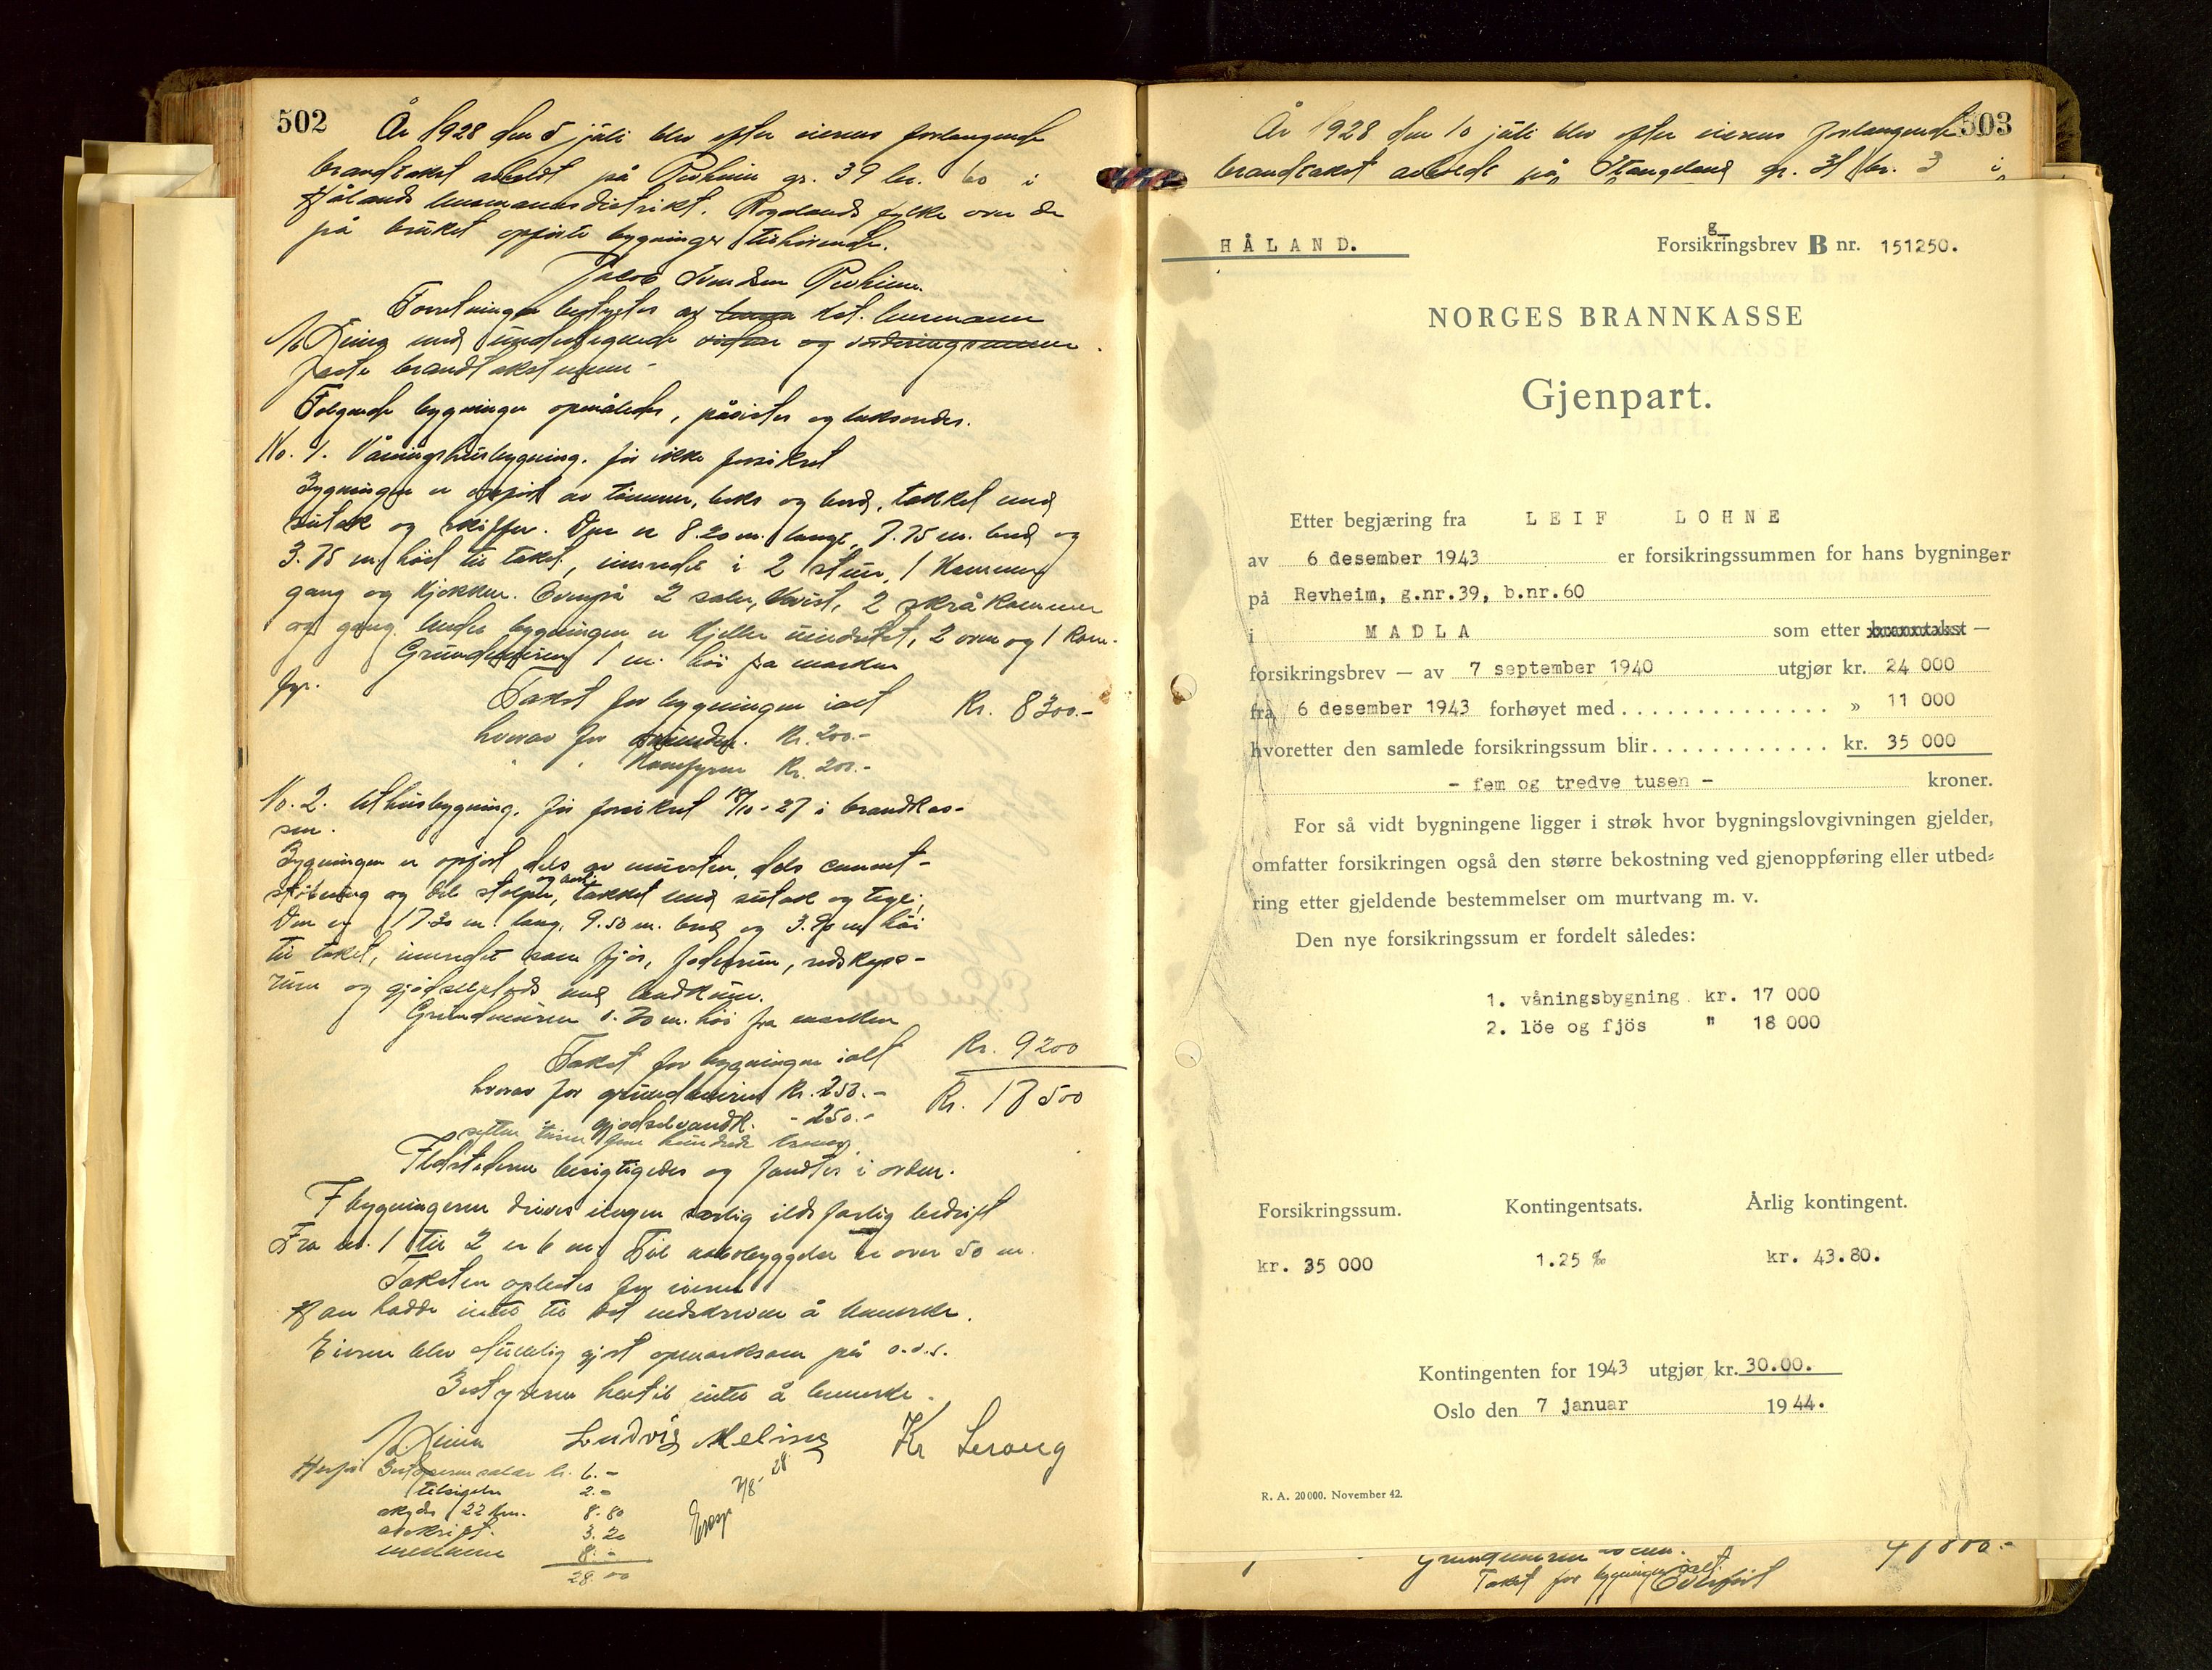 502
År 1928 den 5 juli blev efter eierens forlangende
brandtakst avholdt på Revheim gr. 39 br. 60 i
Hålands lensmannsdistrikt, Rogalands fylke over de
på bruket opførte bygninger tilhørende.
Jakob Svendsen Revheim.
Forretningen bestyrtes av kst. lensmann
med undertegnede
faste brandtakstmenn -
Følgende bygninger opmåltes, påvistes og taksertes.
No. 1. Våningshusbygning. før ikke forsikret
Bygningen er opført av tømmer, beks og bord, tækket med
sutak og skiffer. Den er 8.20 m. lang, 7.75 m. bred og
3.75 m. høi til taket, innredet i 2 stuer, 1 kammer
gang og kjøkken. Ovenpå 2 saler, kvist, 2 skråkammer
og gang. Under bygningen er kjeller innredet, 2 ovne og 1 kom-
fyr.
Grundmuren 1 m. høi fra marken
Takst for bygningen ialt Kr. 8300.-
hvorav for grunden. Kr. 200.-
" " Komfyren Kr. 200.-
No. 2. Uthusbygning. før forsikret 18/10-27 i brandkas-
sen.
Bygningen er opført dels av mursten, dels cement-
støbning og del stolper og bord, tækket med sutak og tegl;
Den er 17.30 m. lang, 9.50 m. bred og 3.90 m høi
til taket, innredet som fjøs, foderum, redskaps-
rum og gjødselplads med landkum.
Grundmuren 0.70 m. høi fra marken
Takst for bygningen ialt Kr. 9200
hvorav for grundmuren Kr. 250.- Kr. 17500
gjødselvandk. - 250.-
sytten tusen fem hundrede kroner.
Ildstederne besigtigedes og fandtes i orden.
I bygningerne drives ingen særlig ildsfarlig bedrift
Fra no. 1 til 2 er 6 m. Til nabobyggelse er over 50 m.
Taksten oplestes for eieren
Han hadde intet til det nedskrevne å bemerke.
Eieren blev skriftlig gjort opmerksom på o.s.v.
Bestyreren hertil intet å bemerke.
Ludvig Meling Kr Leroug
Herfor Bestyrerens salær kr. 6.-
tilsigelse 2.-
skyds 22 km. 8.80
avskrift. 3.20
mennene 8.-
28.00
7/8-28
503
År 1928 den 10 juli blev efter eierens forlangende
brandtakst avholdt på Stangeland gr. 31 br. 3 i
HÅLAND.
g
Forsikringsbrev B nr. 151250.
NORGES BRANNKASSE
Gjenpart.
Etter begjæring fra LEIF LOHNE
av 6 desember 1943 er forsikringssummen for hans bygninger
på Revheim, g.nr.39, b.nr.60
i MADLA som etter branntakst —
forsikringsbrev — av 7 september 1940 utgjør kr. 24 000
fra 6 desember 1943 forhøyet med . . . . . . . . . . . . . . . » 11 000
hvoretter den samlede forsikringssum blir. . . . . . . . . . . . . kr. 35 000
- fem og tredve tusen - kroner.
For så vidt bygningene ligger i strøk hvor bygningslovgivningen gjelder,
omfatter forsikringen også den større bekostning ved gjenoppføring eller utbed-
ring etter gjeldende bestemmelser om murtvang m. v.
Den nye forsikringssum er fordelt således:
1. våningsbygning kr. 17 000
2. löe og fjös " 18 000
Forsikringssum. Kontingentsats. Årlig kontingent.
kr. 35 000 1.25 ‰ kr. 43.80.
Kontingenten for 1943 utgjør kr. 30.00.
Oslo den 7 januar 1944.
R. A. 20000. November 42.
Takst for bygningen ialt
Overført